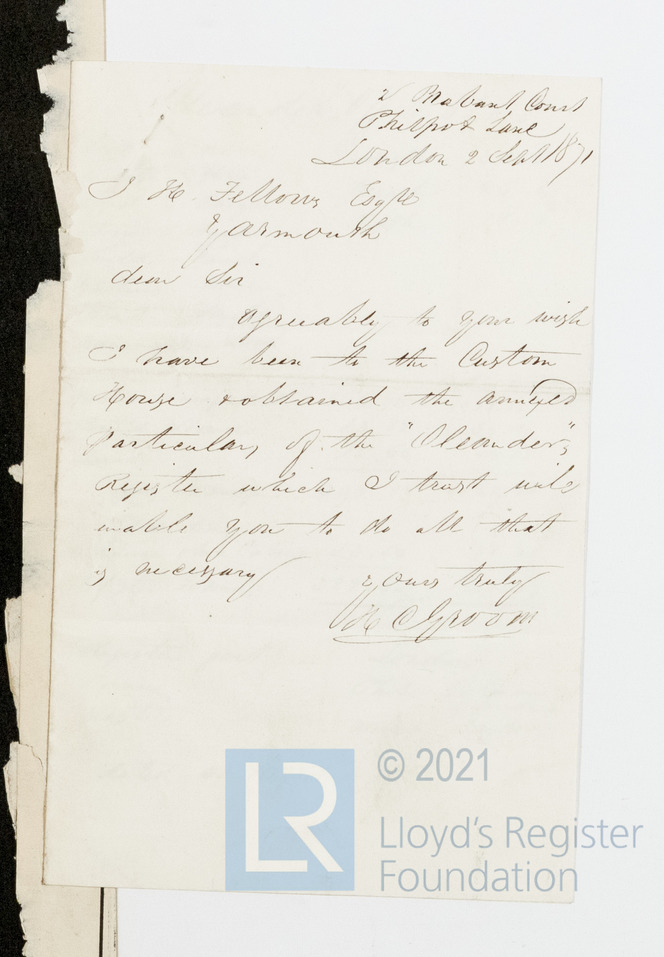 2 Brabant Court
Philpot Lane
London 2 Sept 1871
J H. Fellows Esqre
Yarmouth
dear Sir
agreeably to your wish
I have been to the Custom
House & obtained the annexed
particulars of the "Oleander"s
Register which I trust will
enable you to do all that
is necessary
yours truly
H C Groom
LR
© 2021
Lloyd's Register
Foundation